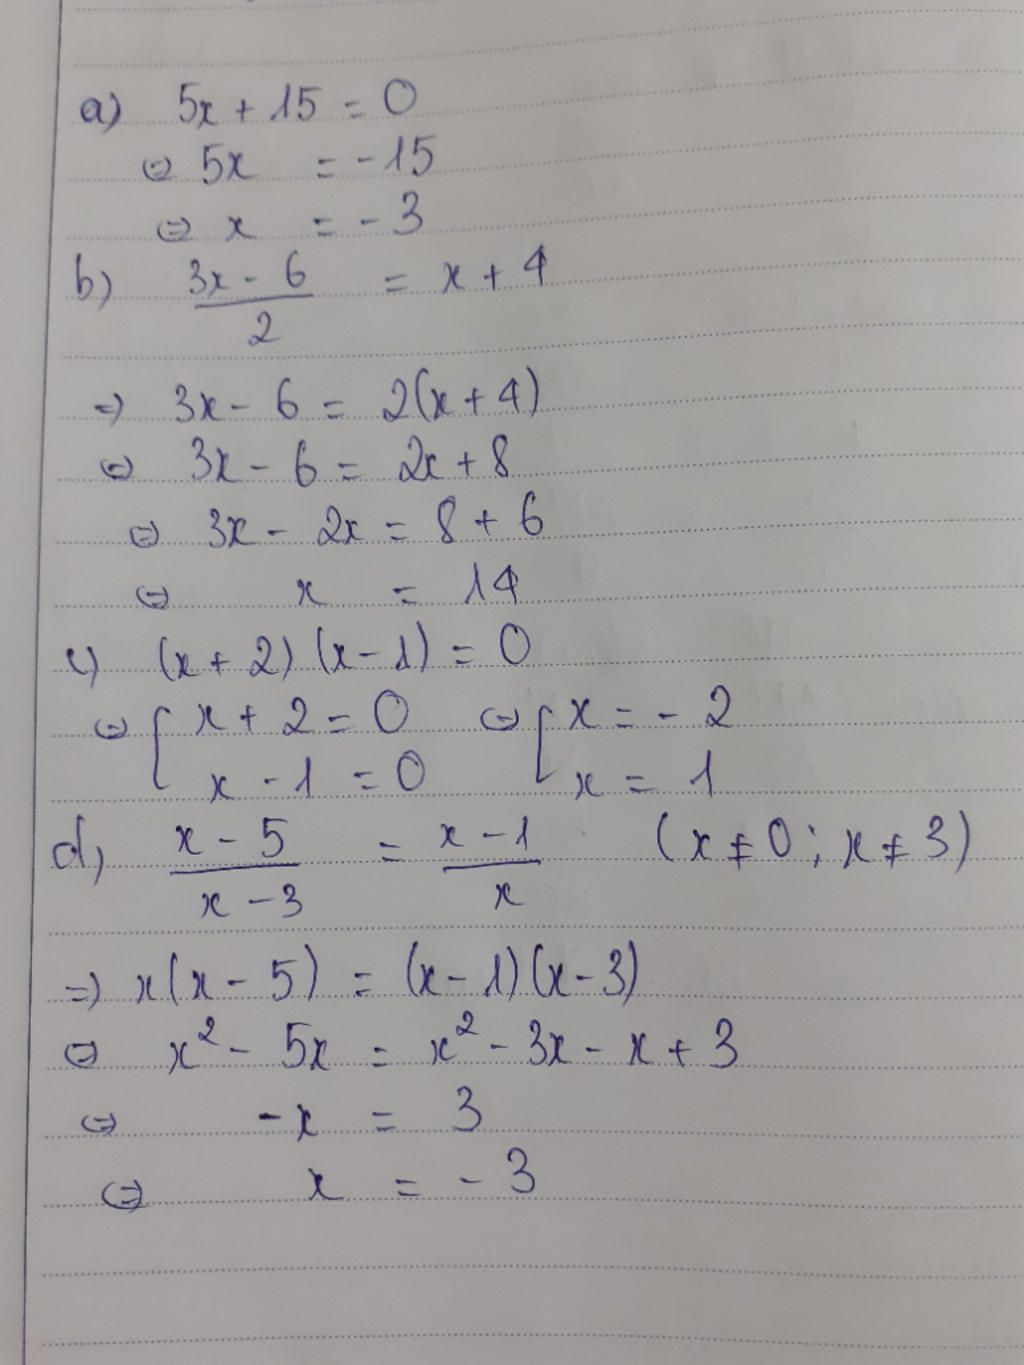 a) 5x + 15 = 0
⇔ 5x = -15
⇔ x = -3
b) (3x - 6)/2 = x + 4
⇒ 3x - 6 = 2(x + 4)
⇔ 3x - 6 = 2x + 8
⇔ 3x - 2x = 8 + 6
⇔ x = 14
c) (x + 2)(x - 1) = 0
⇔ [ x + 2 = 0 ⇔ [ x = -2
x - 1 = 0 x = 1
d) (x - 5)/(x - 3) = (x - 1)/x (x ≠ 0; x ≠ 3)
⇒ x(x - 5) = (x - 1)(x - 3)
⇔ x² - 5x = x² - 3x - x + 3
⇔ -x = 3
⇔ x = -3